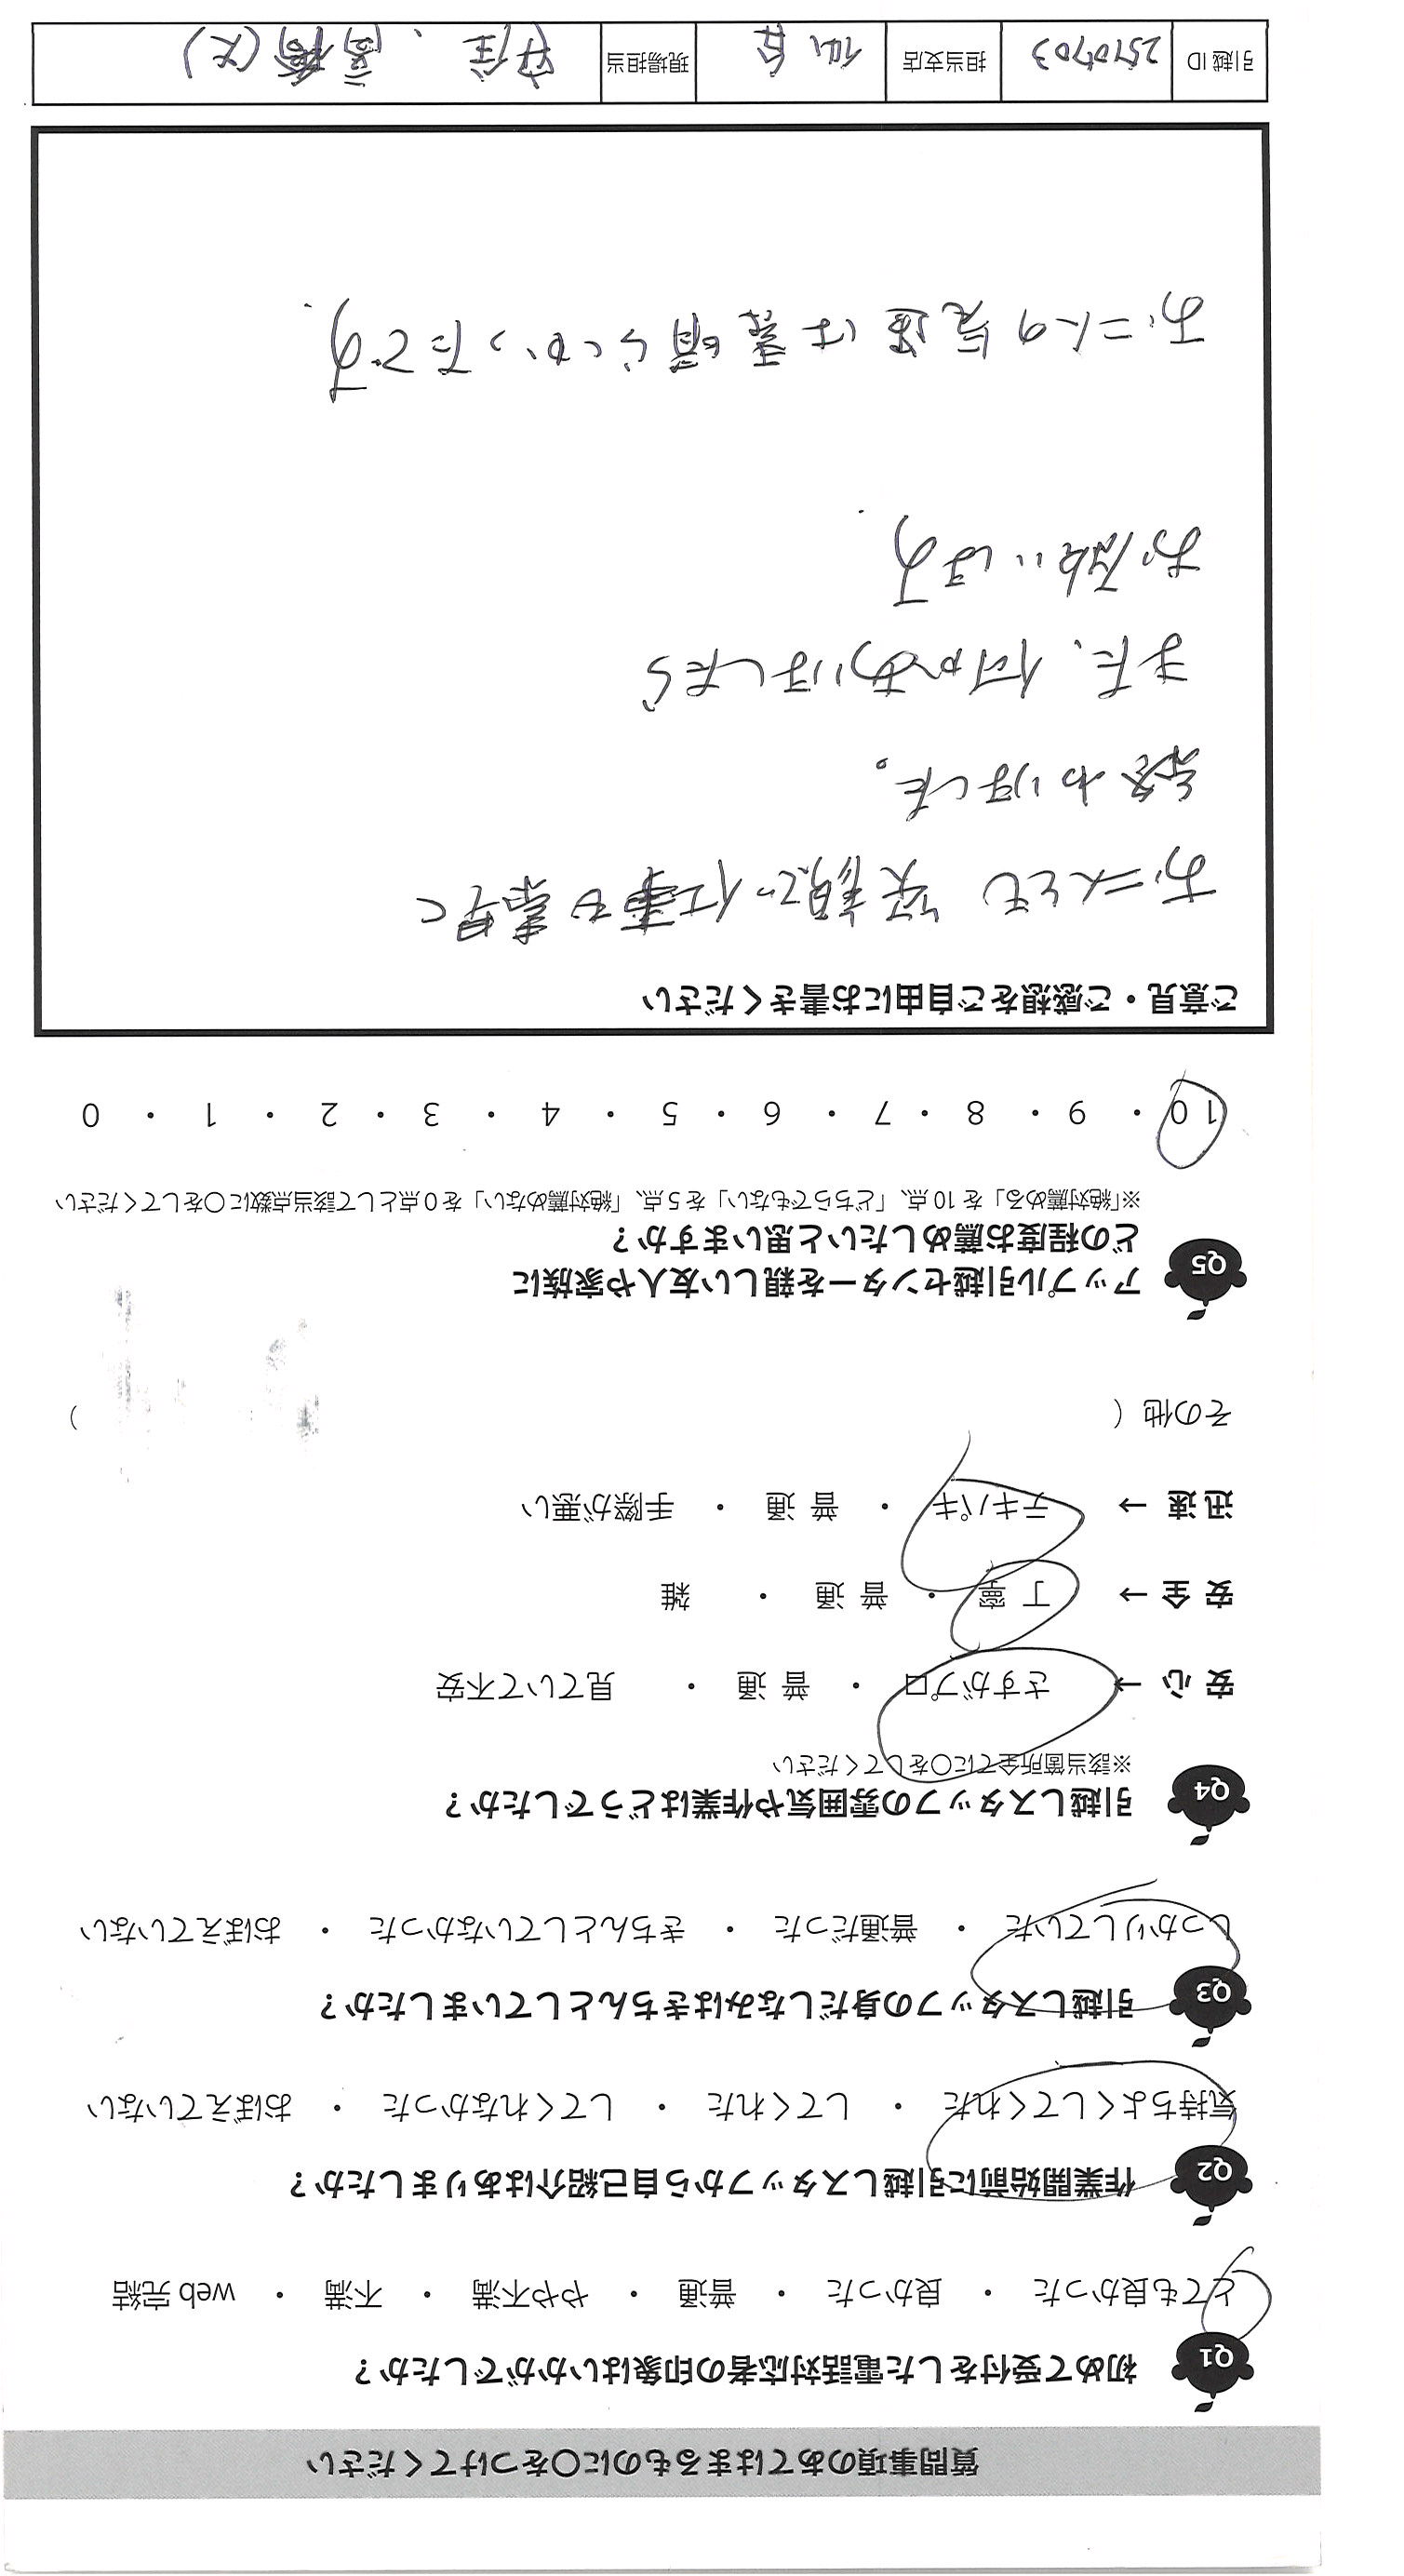 質問事項のあてはまるものに○をつけてください
Q1 初めて受付をした電話対応者の印象はいかがでしたか？
とても良かった ・ 良かった ・ 普通 ・ やや不満 ・ 不満 ・ web 完結
Q2 作業開始前に引越しスタッフから自己紹介はありましたか？
気持ちよくしてくれた ・ してくれた ・ してくれなかった ・ おぼえていない
Q3 引越しスタッフの身だしなみはきちんとしていましたか？
しっかりしていた ・ 普通だった ・ きちんとしていなかった ・ おぼえていない
Q4 引越しスタッフの雰囲気や作業はどうでしたか？
※該当箇所全てに○をしてください
安 心 → さすがプロ ・ 普 通 ・ 見ていて不安
安 全 → 丁 寧 ・ 普 通 ・ 雑
迅 速 → テキパキ ・ 普 通 ・ 手際が悪い
その他（ ）
Q5 アップル引越センターを親しい友人や家族に
どの程度お薦めしたいと思いますか？
※「絶対薦める」を 10 点、「どちらでもない」を 5 点、「絶対薦めない」を 0 点として該当点数に○をしてください
10 ・ 9 ・ 8 ・ 7 ・ 6 ・ 5 ・ 4 ・ 3 ・ 2 ・ 1 ・ 0
ご意見・ご感想をご自由にお書きください
お二人とも 笑顔で仕事も素早く
終わりました。
また、何かありましたら
お願いします.
お二人の気遣は素晴らしかったです.
引越 ID 2510703 担当支店 仙台 現場担当 安住、高橋(大)